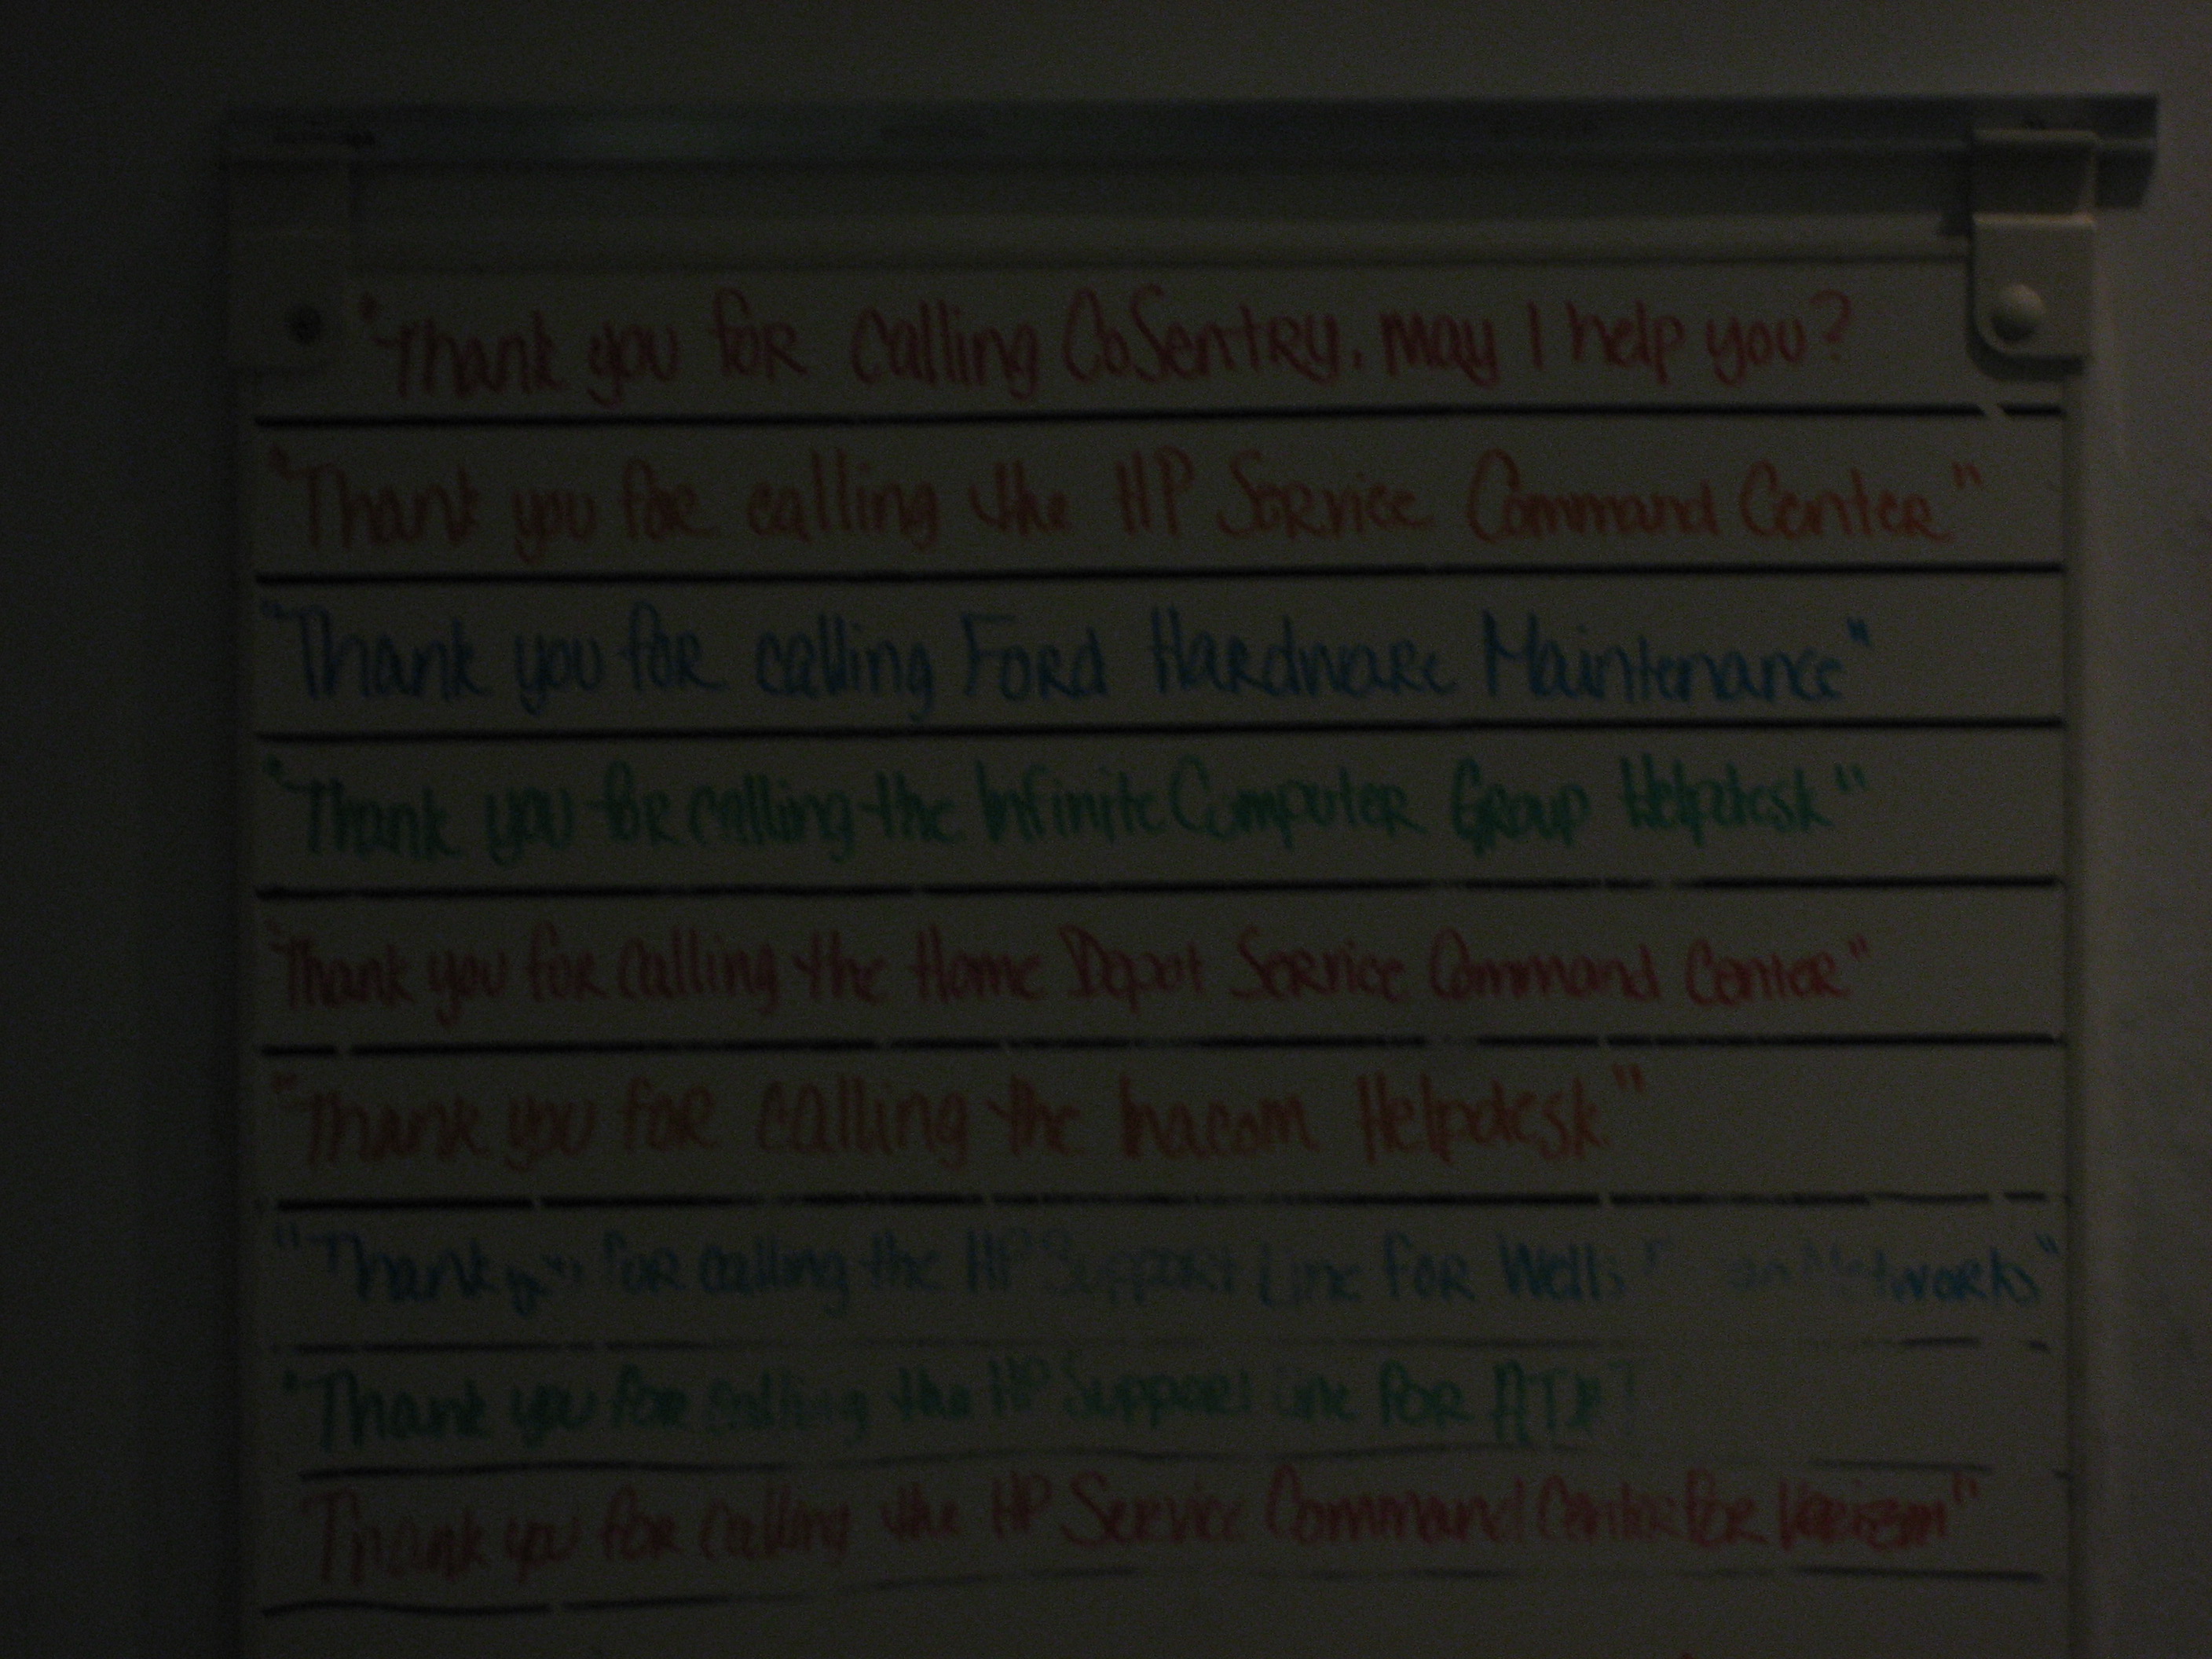 "Thank you for calling CoSentry. May I help you?
"Thank you for calling the HP Service Command Center"
"Thank you for calling Ford Hardware Maintenance"
"Thank you for calling the Infinite Computer Group Helpdesk"
"Thank you for calling the Home Depot Service Command Center"
"Thank you for calling the Inacom Helpdesk"
"Thank you for calling the HP Support Line for Wells Networks"
"Thank you for calling the HP Support Line for
"Thank you for calling the HP Service Command Center for Verizon"